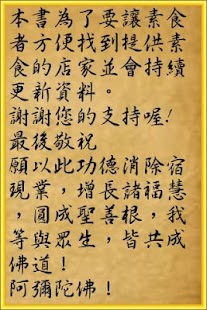 本書為了要讓素食
者方便找到提供素
食的店家並會持續
更新資料。
謝謝您的支持喔!
最後敬祝
願以此功德消除宿
現業，增長諸福慧
，圓成聖善根，我
等與眾生，皆共成
佛道！
阿彌陀佛！